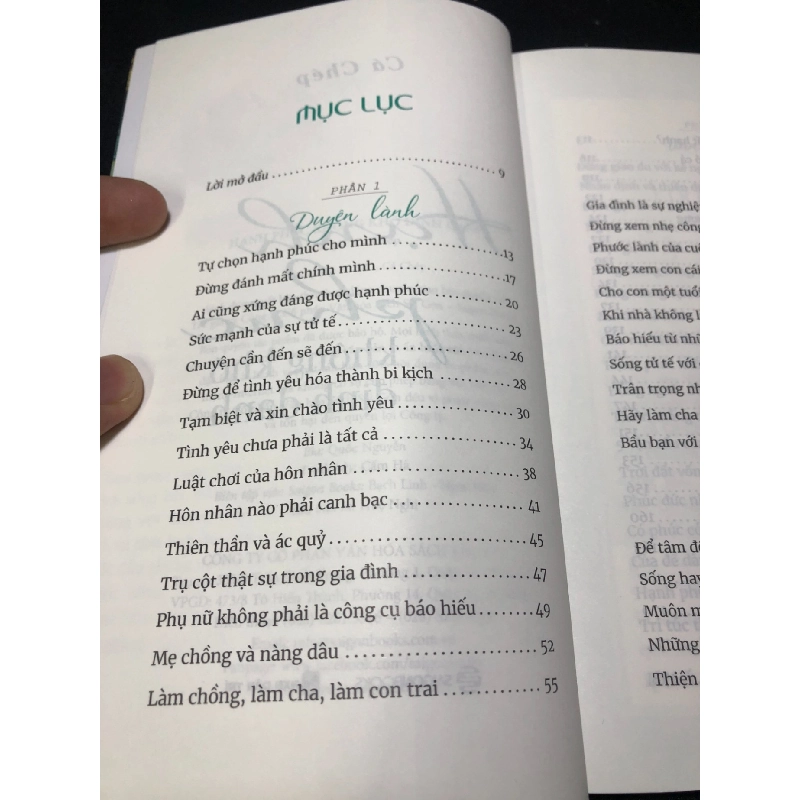 MỤC LỤC
Lời mở đầu 9
PHẦN 1
Duyên lành
Tự chọn hạnh phúc cho mình 13
Đừng đánh mất chính mình 17
Ai cũng xứng đáng được hạnh phúc 20
Sức mạnh của sự tử tế 23
Chuyện cần đến sẽ đến 26
Đừng để tình yêu hóa thành bi kịch 28
Tạm biệt và xin chào tình yêu 30
Tình yêu chưa phải là tất cả 34
Luật chơi của hôn nhân 38
Hôn nhân nào phải canh bạc 41
Thiên thần và ác quỷ 45
Trụ cột thật sự trong gia đình 47
Phụ nữ không phải là công cụ báo hiếu 49
Mẹ chồng và nàng dâu 52
Làm chồng, làm cha, làm con trai 55
Gia đình là sự nghiệ
Đừng xem nhẹ côn
Phước lành của cu
Đừng xem con cái
Cho con một tuổ
Khi nhà không l
Báo hiếu từ nhữ
Sống tử tế với
Trân trọng nh
Hãy làm cha
Bầu bạn với
Để tâm đ
Sống hay
Muôn n
Những
Thiện